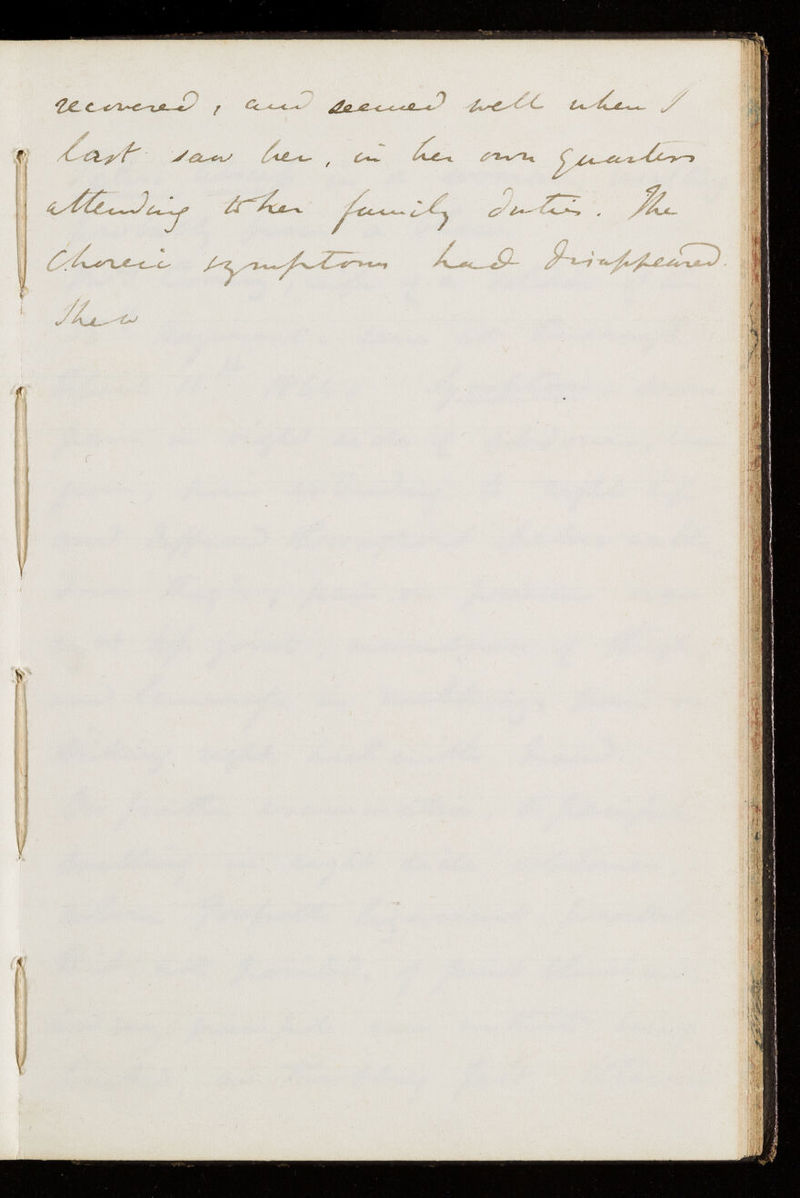 recovered, and seemed well when I
last saw her, in her own quarters
attending to her family duties. The
Choreic symptoms had disappeared.